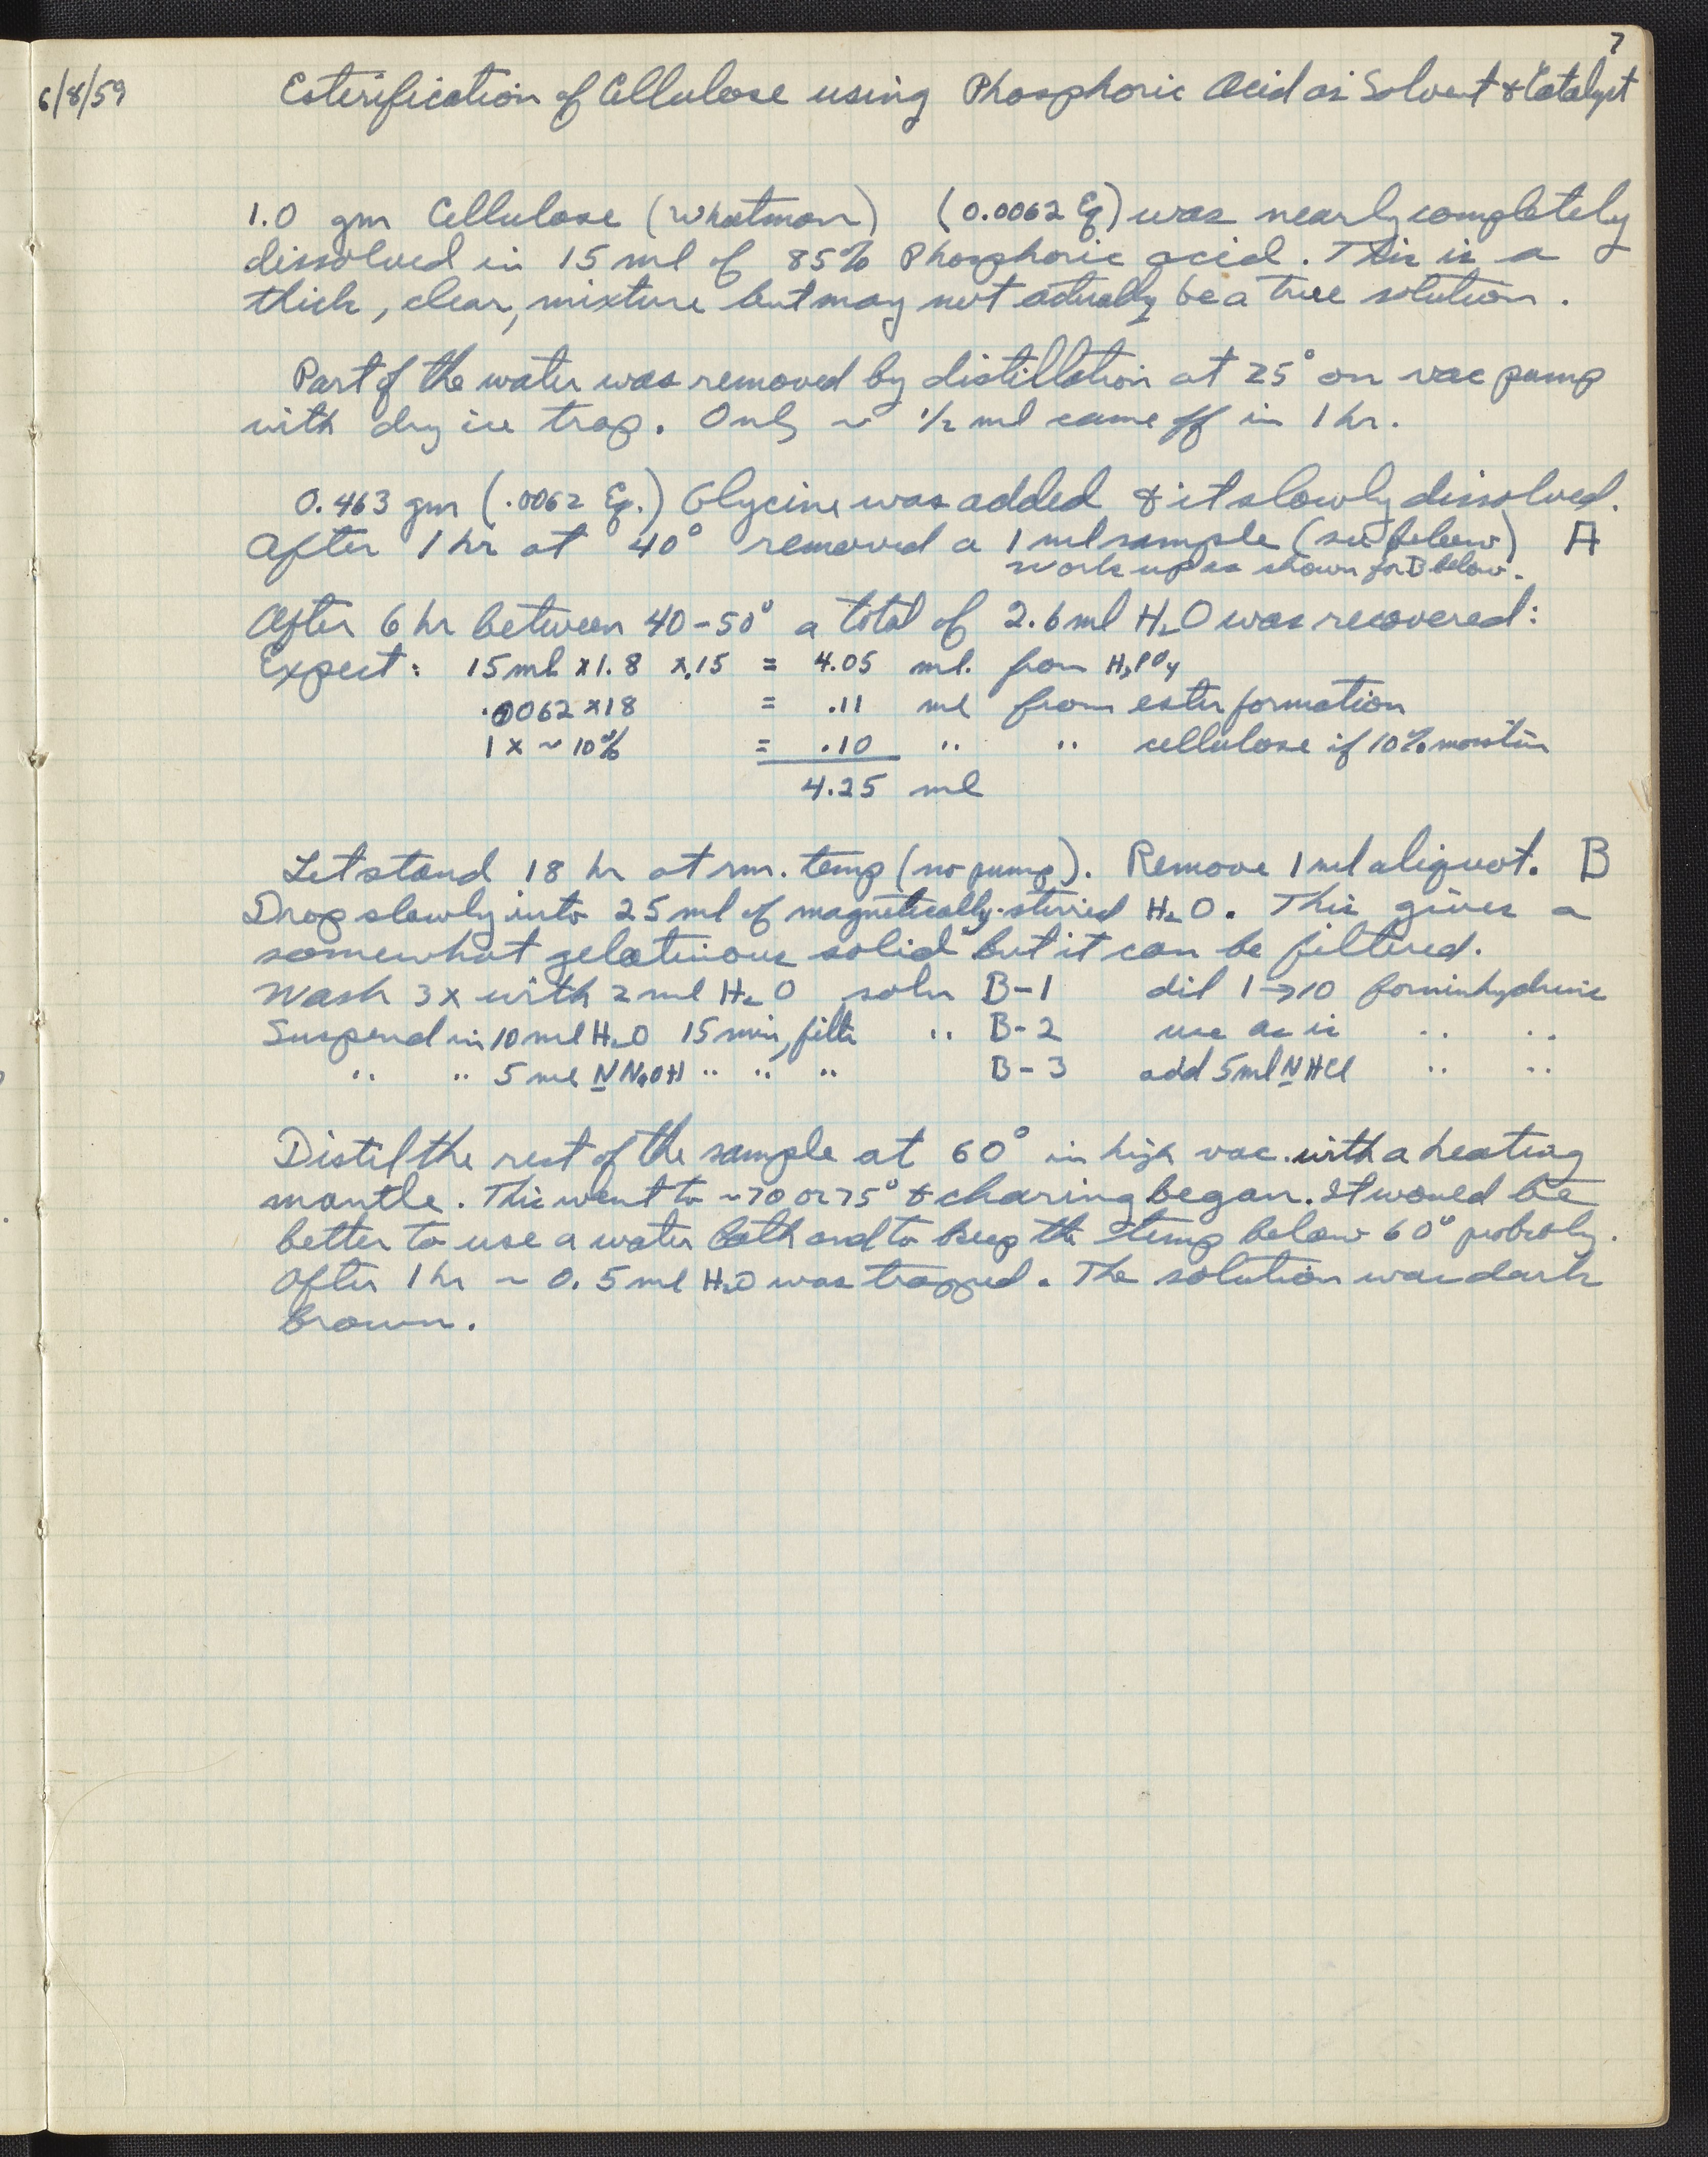 7
6/8/59 Esterification of Cellulose using Phosphoric Acid as Solvent & Catalyst
1.0 gm Cellulose (Whatman) (0.0062 Eq) was nearly completely
dissolved in 15 ml of 85% Phosphoric acid. This is a
thick, clear, mixture but may not actually be a true solution.
Part of the water was removed by distillation at 25° on vac pump
with dry ice trap. Only ~ 1/2 ml came off in 1 hr.
0.463 gm (.0062 Eq.) Glycine was added & it slowly dissolved.
After 1 hr at 40° removed a 1 ml sample (see below) A
work up as shown for B below.
After 6 hr between 40-50° a total of 2.6 ml H2O was recovered:
Expect: 15 ml x 1.8 x .15 = 4.05 ml. from H3PO4
.0062 x 18 = .11 ml from ester formation
1 x ~ 10% = .10 " " cellulose if 10% moisture
4.25 ml
Let stand 18 hr at rm. temp (no pump). Remove 1 ml aliquot. B
Drop slowly into 25 ml of magnetically-stirred H2O. This gives a
somewhat gelatinous solid but it can be filtered.
Wash 3x with 2 ml H2O soln B-1 dil 1→10 for ninhydrin
Suspend in 10 ml H2O 15 min, filter " B-2 use as is " "
" " 5 ml N NaOH " " " B-3 add 5 ml N HCl " "
Distil the rest of the sample at 60° in high vac. with a heating
mantle. This went to ~70 or 75° & charing began. It would be
better to use a water bath and to keep the temp below 60° probably.
After 1 hr ~ 0.5 ml H2O was trapped. The solution was dark
brown.